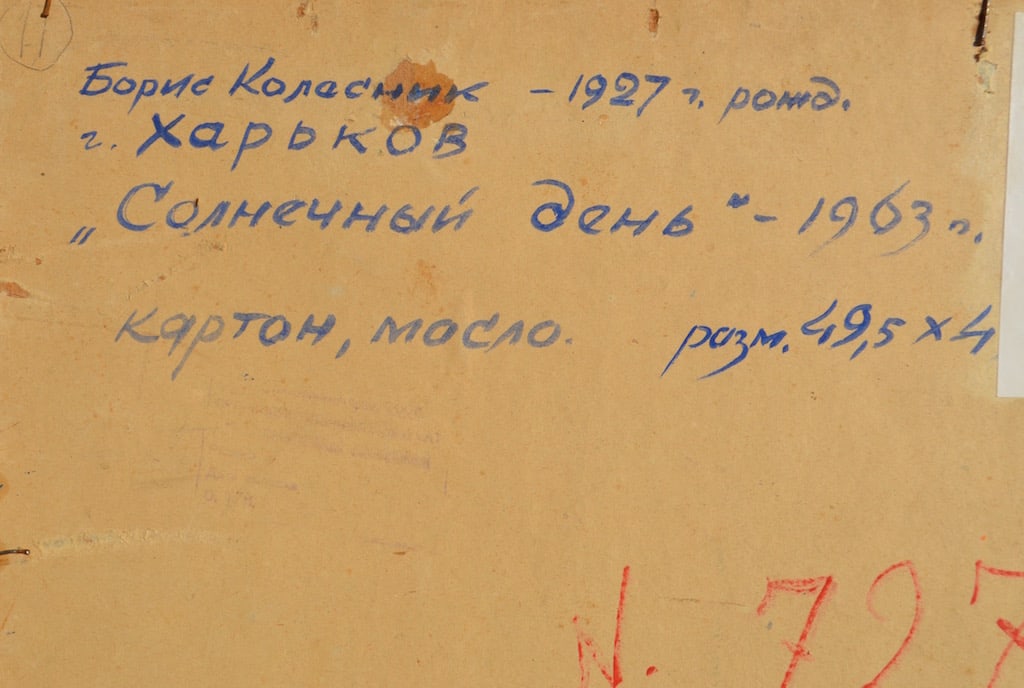 Борис Колесник - 1927 г. рожд.
г. Харьков
„Солнечный день" - 1963 г.
картон, масло. разм. 49,5 x 4
N. 727
11